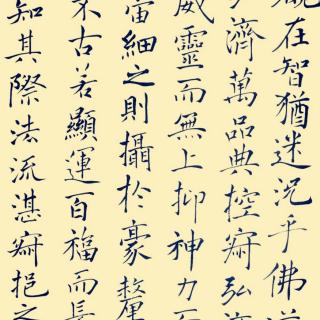 在智猶迷況乎佛道
濟萬品典控寂弘
威靈而無上抑神力而
細之則攝於豪釐
不古若顯運百福而長
知其際法流湛寂挹之